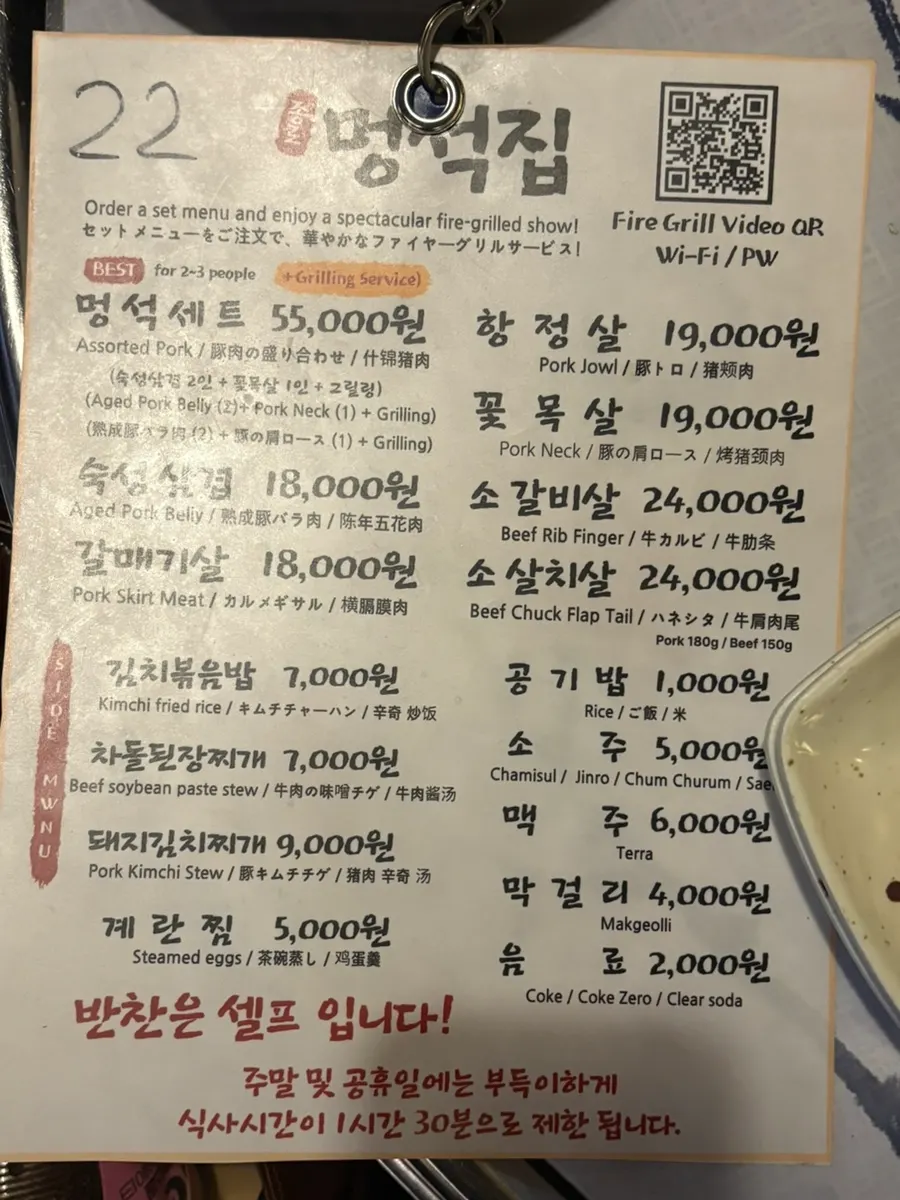 22
종로
멍석집
Order a set menu and enjoy a spectacular fire-grilled show!
セットメニューをご注文で、華やかなファイヤーグリルサービス!
Fire Grill Video QR
Wi-Fi / PW
BEST for 2~3 people +Grilling Service)
멍석세트 55,000원
Assorted Pork / 豚肉の盛り合わせ / 什锦猪肉
(숙성삼겹 2인 + 꽃목살 1인 + 그릴링)
(Aged Pork Belly (2)+ Pork Neck (1) + Grilling)
(熟成豚バラ肉 (2) + 豚の肩ロース (1) + Grilling)
숙성삼겹 18,000원
Aged Pork Belly / 熟成豚バラ肉 / 陈年五花肉
갈매기살 18,000원
Pork Skirt Meat / カルメギサル / 横膈膜肉
항정살 19,000원
Pork Jowl / 豚トロ / 猪颊肉
꽃목살 19,000원
Pork Neck / 豚の肩ロース / 烤猪颈肉
소갈비살 24,000원
Beef Rib Finger / 牛カルビ / 牛肋条
소살치살 24,000원
Beef Chuck Flap Tail / ハネシタ / 牛肩肉尾
Pork 180g / Beef 150g
SIDE MWNU
김치볶음밥 7,000원
Kimchi fried rice / キムチチャーハン / 辛奇 炒饭
차돌된장찌개 7,000원
Beef soybean paste stew / 牛肉の味噌チゲ / 牛肉酱汤
돼지김치찌개 9,000원
Pork Kimchi Stew / 豚キムチチゲ / 猪肉 辛奇 汤
계란찜 5,000원
Steamed eggs / 茶碗蒸し / 鸡蛋羹
공기밥 1,000원
Rice / ご飯 / 米
소주 5,000원
Chamisul / Jinro / Chum Churum / Sae
맥주 6,000원
Terra
막걸리 4,000원
Makgeolli
음료 2,000원
Coke / Coke Zero / Clear soda
반찬은 셀프 입니다!
주말 및 공휴일에는 부득이하게
식사시간이 1시간 30분으로 제한 됩니다.